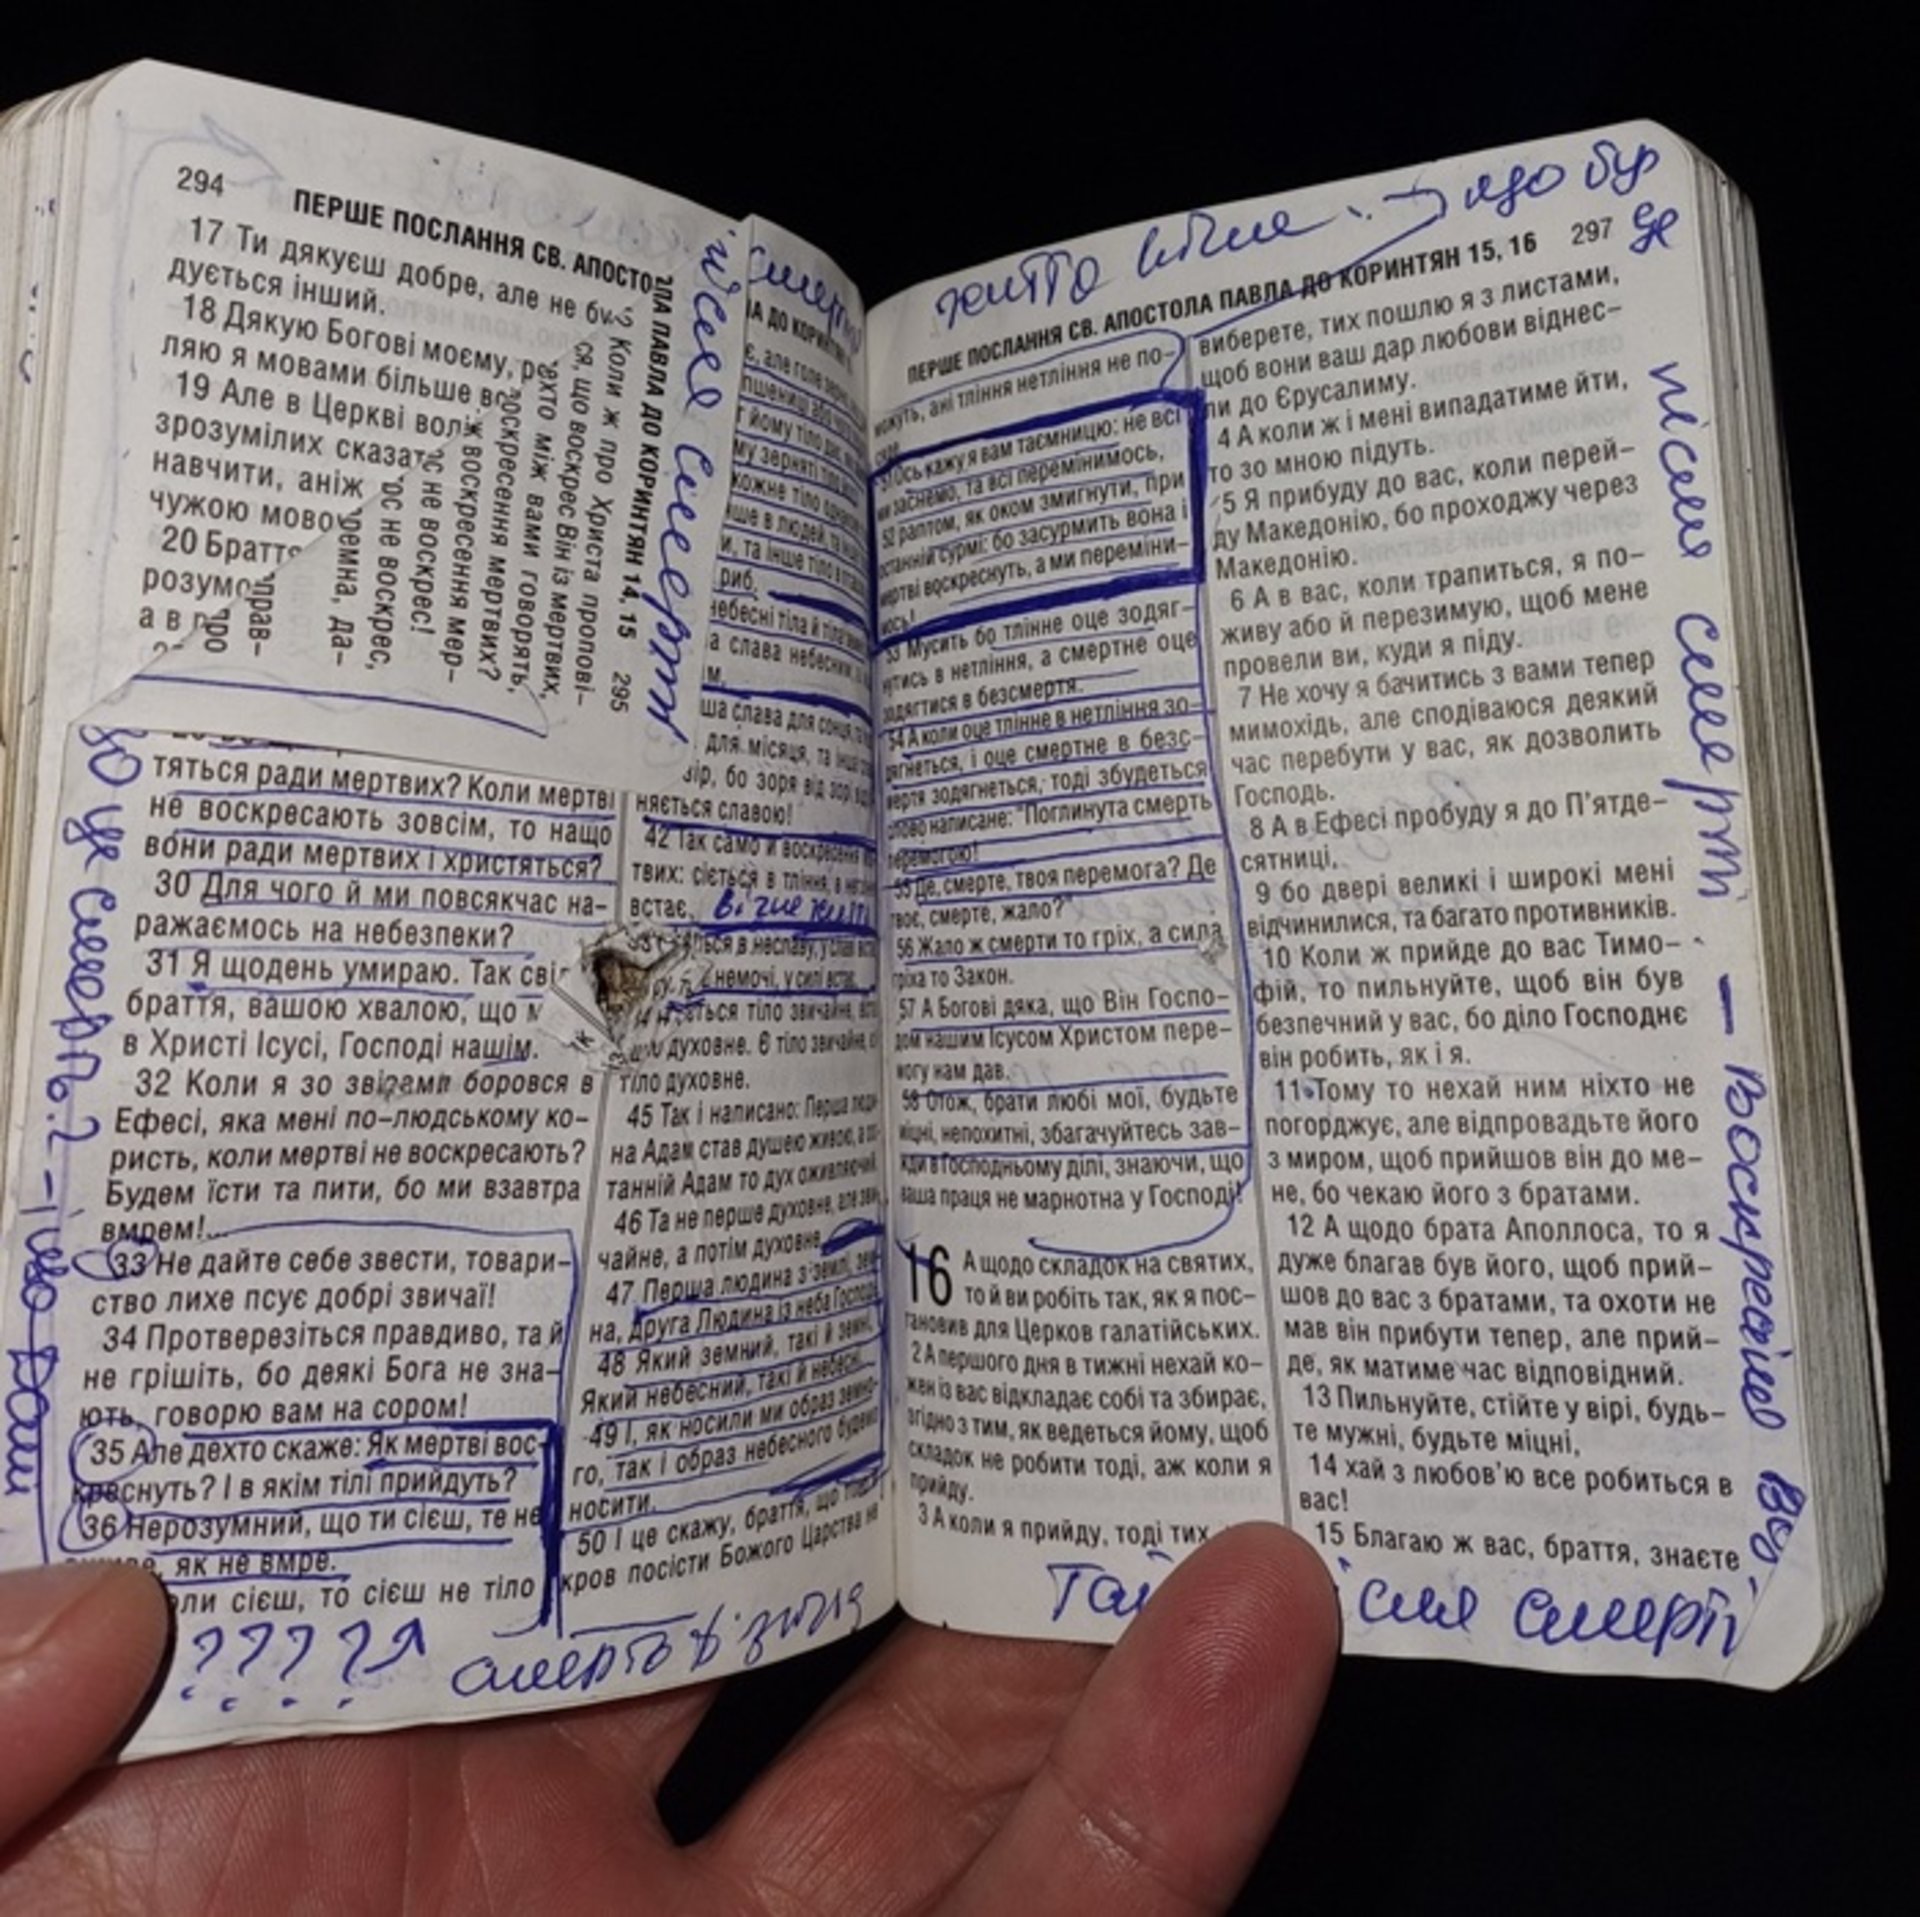 294
ПЕРШЕ ПОСЛАННЯ СВ. АПОСТО
17 Ти дякуєш добре, але не бу
дується інший.
18 Дякую Богові моєму,
ляю я мовами більше
19 Але в Церкві волі
зрозумілих сказат
навчити, аніж
чужою мово
20 Браття
розумо
ЛА ПАВЛА ДО КОРИНТЯН 14, 15 295
Коли ж про Христа пропові-
ся, що воскрес Він із мертвих,
хто між вами говорять,
воскресення мертвих?
воскресення мер-
не воскрес!
ос не воскрес,
ремна, да-
прав-
після смерті
тяться ради мертвих? Коли мертві
не воскресають зовсім, то нащо
вони ради мертвих і христяться?
30 Для чого й ми повсякчас на-
ражаємось на небезпеки?
31 Я щодень умираю. Так сві
браття, вашою хвалою, що м
в Христі Ісусі, Господі нашім.
32 Коли я зо звірами боровся в
Ефесі, яка мені по-людському ко-
ристь, коли мертві не воскресають?
Будем їсти та пити, бо ми взавтра
вмрем!...
33 Не дайте себе звести, товари-
ство лихе псує добрі звичаї!
34 Протверезіться правдиво, та й
не грішіть, бо деякі Бога не зна-
ють, говорю вам на сором!
35 Але дехто скаже: Як мертві вос-
креснуть? І в якім тілі прийдуть?
36 Нерозумний, що ти сієш, те не
як не вмре.
сієш, то сієш не тіло
????
смерть
смерті
ЛА ДО КОРИНТЯН
є, але голе зерно
пшениці або
г йому тіло дає, як
му зерняті
кожне тіло однакове
нше в людей, та інше
и, та інше тіло в пта
риб.
небесні тіла й тіла
а слава небесним,
м.
ша слава для сонця, та
для місяця, та інша
зір, бо зоря від зорі
няється славою!
42 Так само й воскресення
твих: сіється в тління, в не
встає,
в неславу, у славі
немочі, у силі встає,
ться тіло звичайне,
духовне. Є тіло звичайне,
тіло духовне.
45 Так і написано: Перша люди-
на Адам став душею живою, а ос-
танній Адам то дух оживляючий.
46 Та не перше духовне, але зви-
чайне, а потім духовне.
47 Перша людина з землі, зем
на, друга Людина із неба Господь.
48 Який земний, такі й земні,
Який небесний, такі й небесні.
49 І, як носили ми образ земно-
го, так і образ небесного будемо
носити.
50 І це скажу, браття, що тіло й
кров посісти Божого Царства не
життя вічне
що буде
ПЕРШЕ ПОСЛАННЯ СВ. АПОСТОЛА ПАВЛА ДО КОРИНТЯН 15, 16 297
можуть, ані тління нетління не по-
сяде.
51 Ось кажу я вам таємницю: не всі
ми заснемо, та всі перемінимось,
52 раптом, як оком змигнути, при
останній сурмі: бо засурмить вона і
мертві воскреснуть, а ми переміни-
мось!
53 Мусить бо тлінне оце зодяг-
нутись в нетління, а смертне оце
зодягтися в безсмертя.
54 А коли оце тлінне в нетління зо-
дягнеться, і оце смертне в безс-
мертя зодягнеться, тоді збудеться
слово написане: "Поглинута смерть
перемогою!
55 Де, смерте, твоя перемога? Де
твоє, смерте, жало?"
56 Жало ж смерти то гріх, а сила
гріха то Закон.
57 А Богові дяка, що Він Госпо-
дом нашим Ісусом Христом пере-
могу нам дав.
58 Отож, брати любі мої, будьте
міцні, непохитні, збагачуйтесь зав-
жди в Господньому ділі, знаючи, що
ваша праця не марнотна у Господі!
16 А щодо складок на святих,
то й ви робіть так, як я пос-
тановив для Церков галатійських.
2 А першого дня в тижні нехай ко-
жен із вас відкладає собі та збирає,
згідно з тим, як ведеться йому, щоб
складок не робити тоді, аж коли я
прийду.
3 А коли я прийду, тоді тих,
виберете, тих пошлю я з листами,
щоб вони ваш дар любови віднес-
ли до Єрусалиму.
4 А коли ж і мені випадатиме йти,
то зо мною підуть.
5 Я прибуду до вас, коли перей-
ду Македонію, бо проходжу через
Македонію.
6 А в вас, коли трапиться, я по-
живу або й перезимую, щоб мене
провели ви, куди я піду.
7 Не хочу я бачитись з вами тепер
мимохідь, але сподіваюся деякий
час перебути у вас, як дозволить
Господь.
8 А в Ефесі пробуду я до П'ятде-
сятниці,
9 бо двері великі і широкі мені
відчинилися, та багато противників.
10 Коли ж прийде до вас Тимо-
фій, то пильнуйте, щоб він був
безпечний у вас, бо діло Господнє
він робить, як і я.
11 Тому то нехай ним ніхто не
погорджує, але відпровадьте його
з миром, щоб прийшов він до ме-
не, бо чекаю його з братами.
12 А щодо брата Аполлоса, то я
дуже благав був його, щоб прий-
шов до вас з братами, та охоти не
мав він прибути тепер, але прий-
де, як матиме час відповідний.
13 Пильнуйте, стійте у вірі, будь-
те мужні, будьте міцні,
14 хай з любов'ю все робиться в
вас!
15 Благаю ж вас, браття, знаєте
після смерті –
смерті